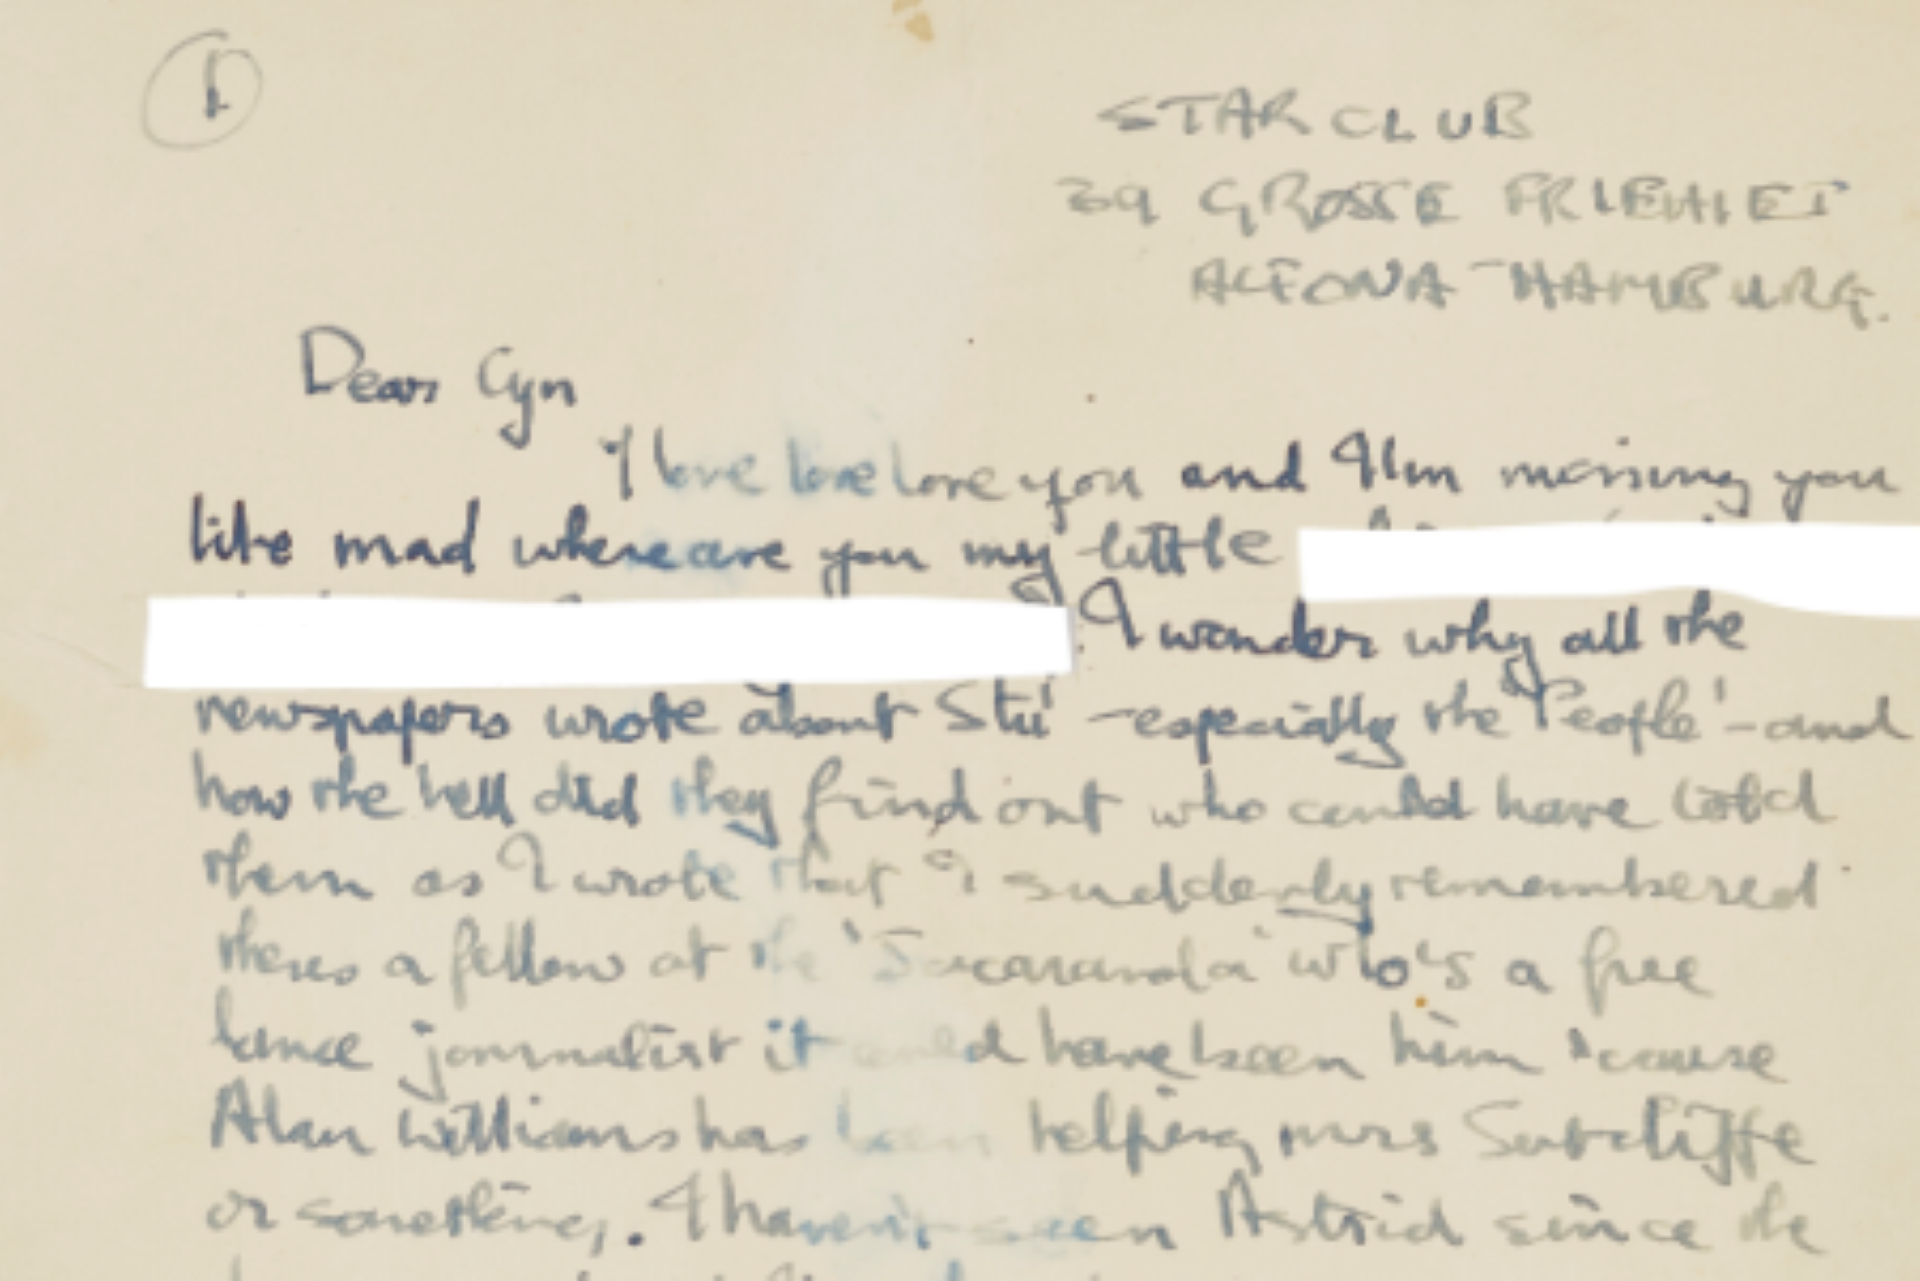 1
STAR CLUB
39 GROSSE FRIEHIET
ALTONA - HAMBURG.
Dear Cyn
I love love love you and I'm missing you
like mad where are you my little
. I wonder why all the
newspapers wrote about Stu' - especially the 'People' - and
how the hell did they find out who could have told
them as I wrote that I suddenly remembered
theres a fellow at the 'Jacaranda' who's a free
lance journalist it could have been him 'cause
Alan Williams has been helping mrs Sutcliffe
or something. I haven't seen Astrid since the